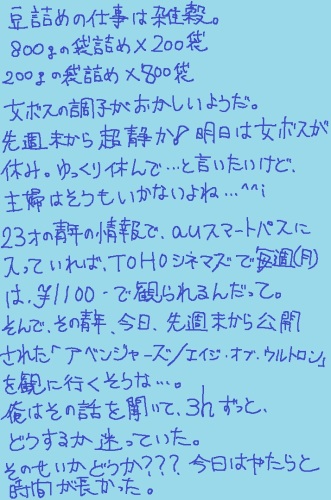 豆詰めの仕事は雑穀。
800gの袋詰め×200袋
200gの袋詰め×800袋
女ボスの調子がおかしいようだ。
先週末から超静か♪明日は女ボスが
休み。ゆっくり休んで…と言いたいけど、
主婦はそうもいかないよね…^^;
23才の青年の情報で、auスマートパスに
入っていれば、TOHOシネマズで毎週(月)
は、¥1100-で観られるんだって。
そんで、その青年、今日、先週末から公開
された「アベンジャーズ/エイジ・オブ・ウルトロン」
を観に行くそうな…。
俺はその話を聞いて、3hずっと、
どうするか迷っていた。
そのせいかどうか???今日はやたらと
時間が長かった。